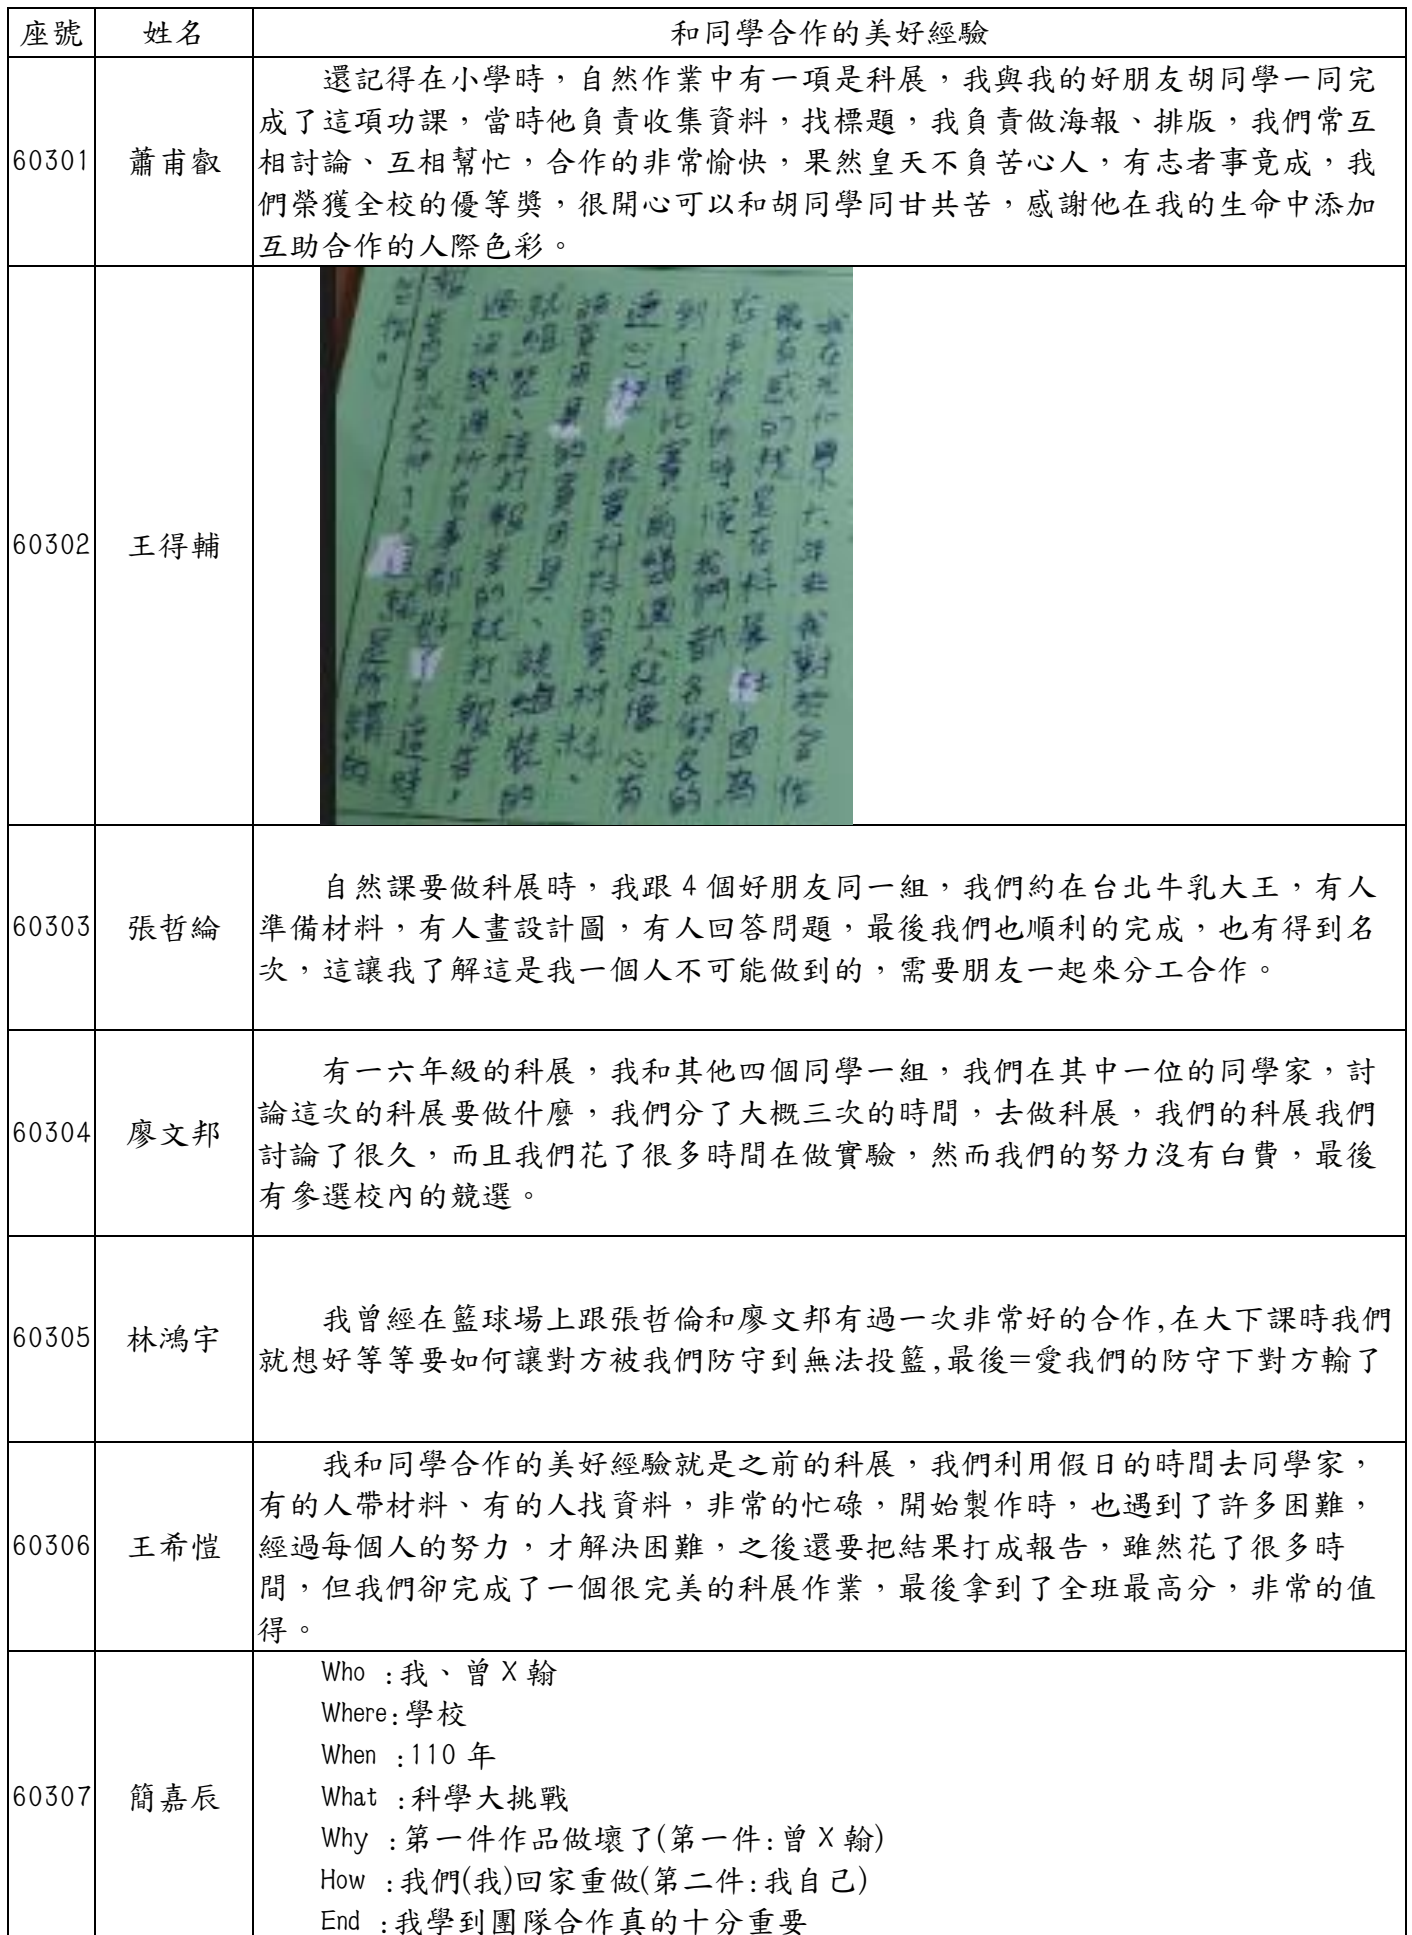 座號 姓名 和同學合作的美好經驗
60301 蕭甫叡
還記得在小學時，自然作業中有一項是科展，我與我的好朋友胡同學一同完
成了這項功課，當時他負責收集資料，找標題，我負責做海報、排版，我們常互
相討論、互相幫忙，合作的非常愉快，果然皇天不負苦心人，有志者事竟成，我
們榮獲全校的優等獎，很開心可以和胡同學同甘共苦，感謝他在我的生命中添加
互助合作的人際色彩。
60302 王得輔
我在 六年來我對於合作
最有感的就是在科展 因為
在平常的時候我們都各做各的
到了要比賽前 人就像心有
該買材料的買材料、
就組裝、該打報告的就打報告，
過沒 所有事都好了，這時
就是所謂的
60303 張哲綸
自然課要做科展時，我跟 4 個好朋友同一組，我們約在台北牛乳大王，有人
準備材料，有人畫設計圖，有人回答問題，最後我們也順利的完成，也有得到名
次，這讓我了解這是我一個人不可能做到的，需要朋友一起來分工合作。
60304 廖文邦
有一六年級的科展，我和其他四個同學一組，我們在其中一位的同學家，討
論這次的科展要做什麼，我們分了大概三次的時間，去做科展，我們的科展我們
討論了很久，而且我們花了很多時間在做實驗，然而我們的努力沒有白費，最後
有參選校內的競選。
60305 林鴻宇
我曾經在籃球場上跟張哲倫和廖文邦有過一次非常好的合作,在大下課時我們
就想好等等要如何讓對方被我們防守到無法投籃,最後=愛我們的防守下對方輸了
60306 王希愷
我和同學合作的美好經驗就是之前的科展，我們利用假日的時間去同學家，
有的人帶材料、有的人找資料，非常的忙碌，開始製作時，也遇到了許多困難，
經過每個人的努力，才解決困難，之後還要把結果打成報告，雖然花了很多時
間，但我們卻完成了一個很完美的科展作業，最後拿到了全班最高分，非常的值
得。
60307 簡嘉辰
Who :我、曾 X 翰
Where:學校
When :110 年
What :科學大挑戰
Why :第一件作品做壞了(第一件:曾 X 翰)
How :我們(我)回家重做(第二件:我自己)
End :我學到團隊合作真的十分重要